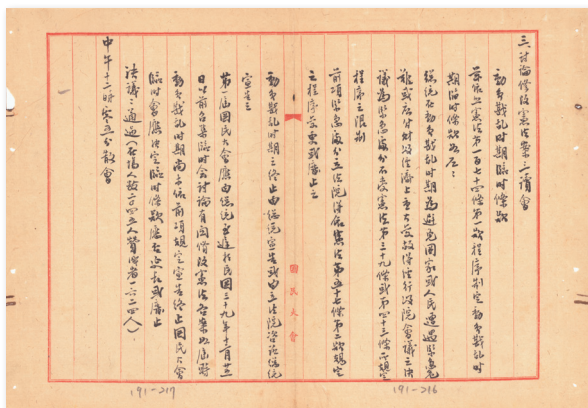 三、討論修改憲法案三讀會
動員戡亂時期臨時條款
茲依照憲法第一百七十四條第一款程序制定動員戡亂時
期臨時條款如左：
總統在動員戡亂時期為避免國家或人民遭遇緊急危
難或應付財政經濟上重大變故得經行政院會議之決
議為緊急處分不受憲法第三十九條或第四十三條所規定
程序之限制
前項緊急處分立法院得依憲法第五十七條第二款規定
之程序變更或廢止之
動員戡亂時期之終止由總統宣告或由立法院咨請總統
宣告之
第一屆國民大會應由總統至遲於民國三十九年十二月廿五
日以前召集臨時會討論有關修改憲法各案如屆時
動員戡亂時期尚未依前項規定宣告終止國民大會
臨時會應決定臨時條款應否延長或廢止
決議：通過（在場人數二〇四五人贊成者一六二四人）
中午十二時零五分散會
國民大會
191-217
191-216